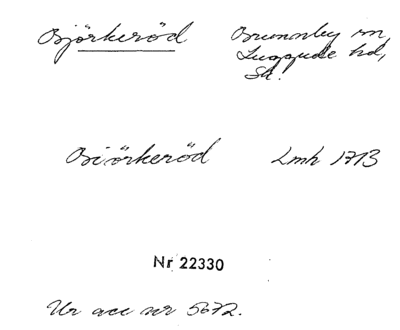 Björkeröd Brunnby sn,
Luggude hd,
Sk.
Biörkeröd Lmh 1713
Nr 22330
Ur acc nr 5672.